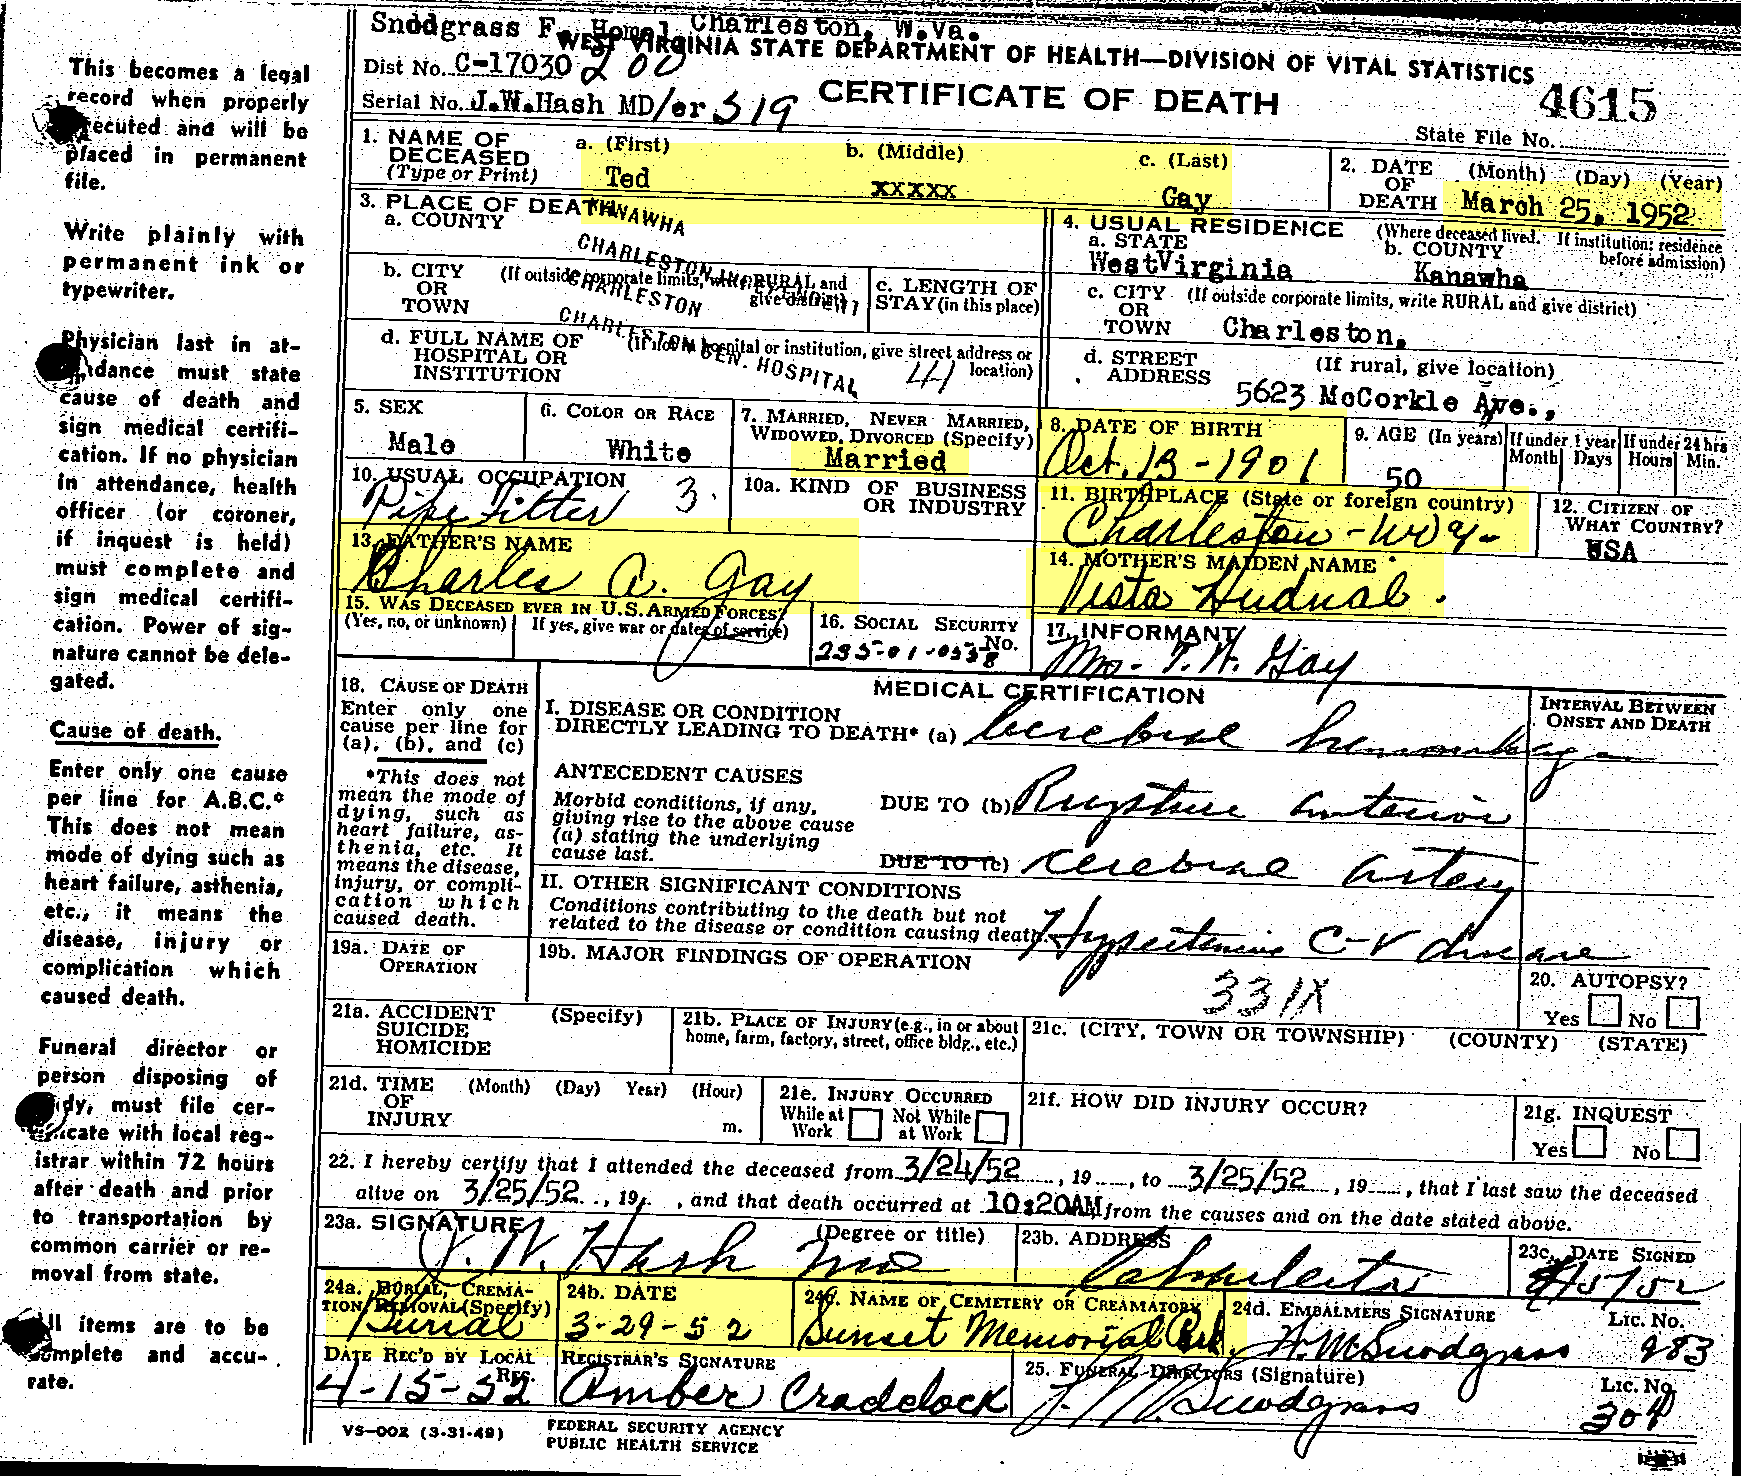 Snodgrass F. Home, Charleston, W.Va.
WEST VIRGINIA STATE DEPARTMENT OF HEALTH—DIVISION OF VITAL STATISTICS
Dist No. C-17030 200
Serial No. J.W.Hash MD/er 319
CERTIFICATE OF DEATH
4615
State File No.
This becomes a legal
record when properly
executed and will be
placed in permanent
file.
Write plainly with
permanent ink or
typewriter.
Physician last in at-
tendance must state
cause of death and
sign medical certifi-
cation. If no physician
in attendance, health
officer (or coroner,
if inquest is held)
must complete and
sign medical certifi-
cation. Power of sig-
nature cannot be dele-
gated.
Cause of death.
Enter only one cause
per line for A.B.C.*
This does not mean
mode of dying such as
heart failure, asthenia,
etc., it means the
disease, injury or
complication which
caused death.
Funeral director or
person disposing of
body, must file cer-
tificate with local reg-
istrar within 72 hours
after death and prior
to transportation by
common carrier or re-
moval from state.
All items are to be
complete and accu-
rate.
1. NAME OF DECEASED (Type or Print)
a. (First) b. (Middle) c. (Last)
Ted xxxxx Gay
2. DATE OF DEATH (Month) (Day) (Year)
March 25, 1952
3. PLACE OF DEATH
a. COUNTY
KANAWHA
CHARLESTON INDEPENDENT
b. CITY OR TOWN (If outside corporate limits, write RURAL and give district)
CHARLESTON
c. LENGTH OF STAY (in this place)
d. FULL NAME OF HOSPITAL OR INSTITUTION (If not in hospital or institution, give street address or location)
CHARLESTON GEN. HOSPITAL 41
4. USUAL RESIDENCE (Where deceased lived. If institution: residence before admission)
a. STATE
WestVirginia
b. COUNTY
Kanawha
c. CITY OR TOWN (If outside corporate limits, write RURAL and give district)
Charleston,
d. STREET ADDRESS (If rural, give location)
5623 McCorkle Ave.,
5. SEX
Male
6. COLOR OR RACE
White
7. MARRIED, NEVER MARRIED, WIDOWED, DIVORCED (Specify)
Married
8. DATE OF BIRTH
Oct. 13-1901
9. AGE (In years)
50
If under 1 year Month Days
If under 24 hrs Hours Min.
10. USUAL OCCUPATION
Pipe Fitter 3.
10a. KIND OF BUSINESS OR INDUSTRY
11. BIRTHPLACE (State or foreign country)
Charleston-W Va-
12. CITIZEN OF WHAT COUNTRY?
USA
13. FATHER'S NAME
Charles A. Gay
14. MOTHER'S MAIDEN NAME
Vista Hudnal.
15. WAS DECEASED EVER IN U.S. ARMED FORCES?
(Yes, no, or unknown) If yes, give war or dates of service)
16. SOCIAL SECURITY No.
235-01-0538
17. INFORMANT
Mrs. T. W. Gay
18. CAUSE OF DEATH
Enter only one
cause per line for
(a), (b), and (c)
*This does not
mean the mode of
dying, such as
heart failure, as-
thenia, etc. It
means the disease,
injury, or compli-
cation which
caused death.
MEDICAL CERTIFICATION
INTERVAL BETWEEN ONSET AND DEATH
I. DISEASE OR CONDITION
DIRECTLY LEADING TO DEATH* (a) Cerebral hemorrhage
ANTECEDENT CAUSES
Morbid conditions, if any,
giving rise to the above cause
(a) stating the underlying
cause last.
DUE TO (b) Rupture anterior
DUE TO (c) cerebral artery
II. OTHER SIGNIFICANT CONDITIONS
Conditions contributing to the death but not
related to the disease or condition causing death.
Hypertensive C-V disease
19a. DATE OF OPERATION
19b. MAJOR FINDINGS OF OPERATION
331X
20. AUTOPSY?
Yes No
21a. ACCIDENT SUICIDE HOMICIDE (Specify)
21b. PLACE OF INJURY (e.g., in or about home, farm, factory, street, office bldg., etc.)
21c. (CITY, TOWN OR TOWNSHIP) (COUNTY) (STATE)
21d. TIME OF INJURY (Month) (Day) Year) (Hour) m.
21e. INJURY OCCURRED
While at Work Not While at Work
21f. HOW DID INJURY OCCUR?
21g. INQUEST
Yes No
22. I hereby certify that I attended the deceased from 3/24/52, 19, to 3/25/52, 19, that I last saw the deceased
alive on 3/25/52, 19, and that death occurred at 10:20AM, from the causes and on the date stated above.
23a. SIGNATURE (Degree or title)
J. W. Hash MD
23b. ADDRESS
Charleston
23c. DATE SIGNED
24a. BURIAL, CREMATION REMOVAL (Specify)
Burial
24b. DATE
3-29-52
24c. NAME OF CEMETERY OR CREAMATORY
Sunset Memorial Park
24d. EMBALMERS SIGNATURE Lic. No.
H. M Snodgrass 983
DATE REC'D BY LOCAL REG.
4-15-52
REGISTRAR'S SIGNATURE
Amber Craddock
25. FUNERAL DIRECTORS (Signature) Lic. No.
Snodgrass 304
VS-002 (3-31-49)
FEDERAL SECURITY AGENCY
PUBLIC HEALTH SERVICE